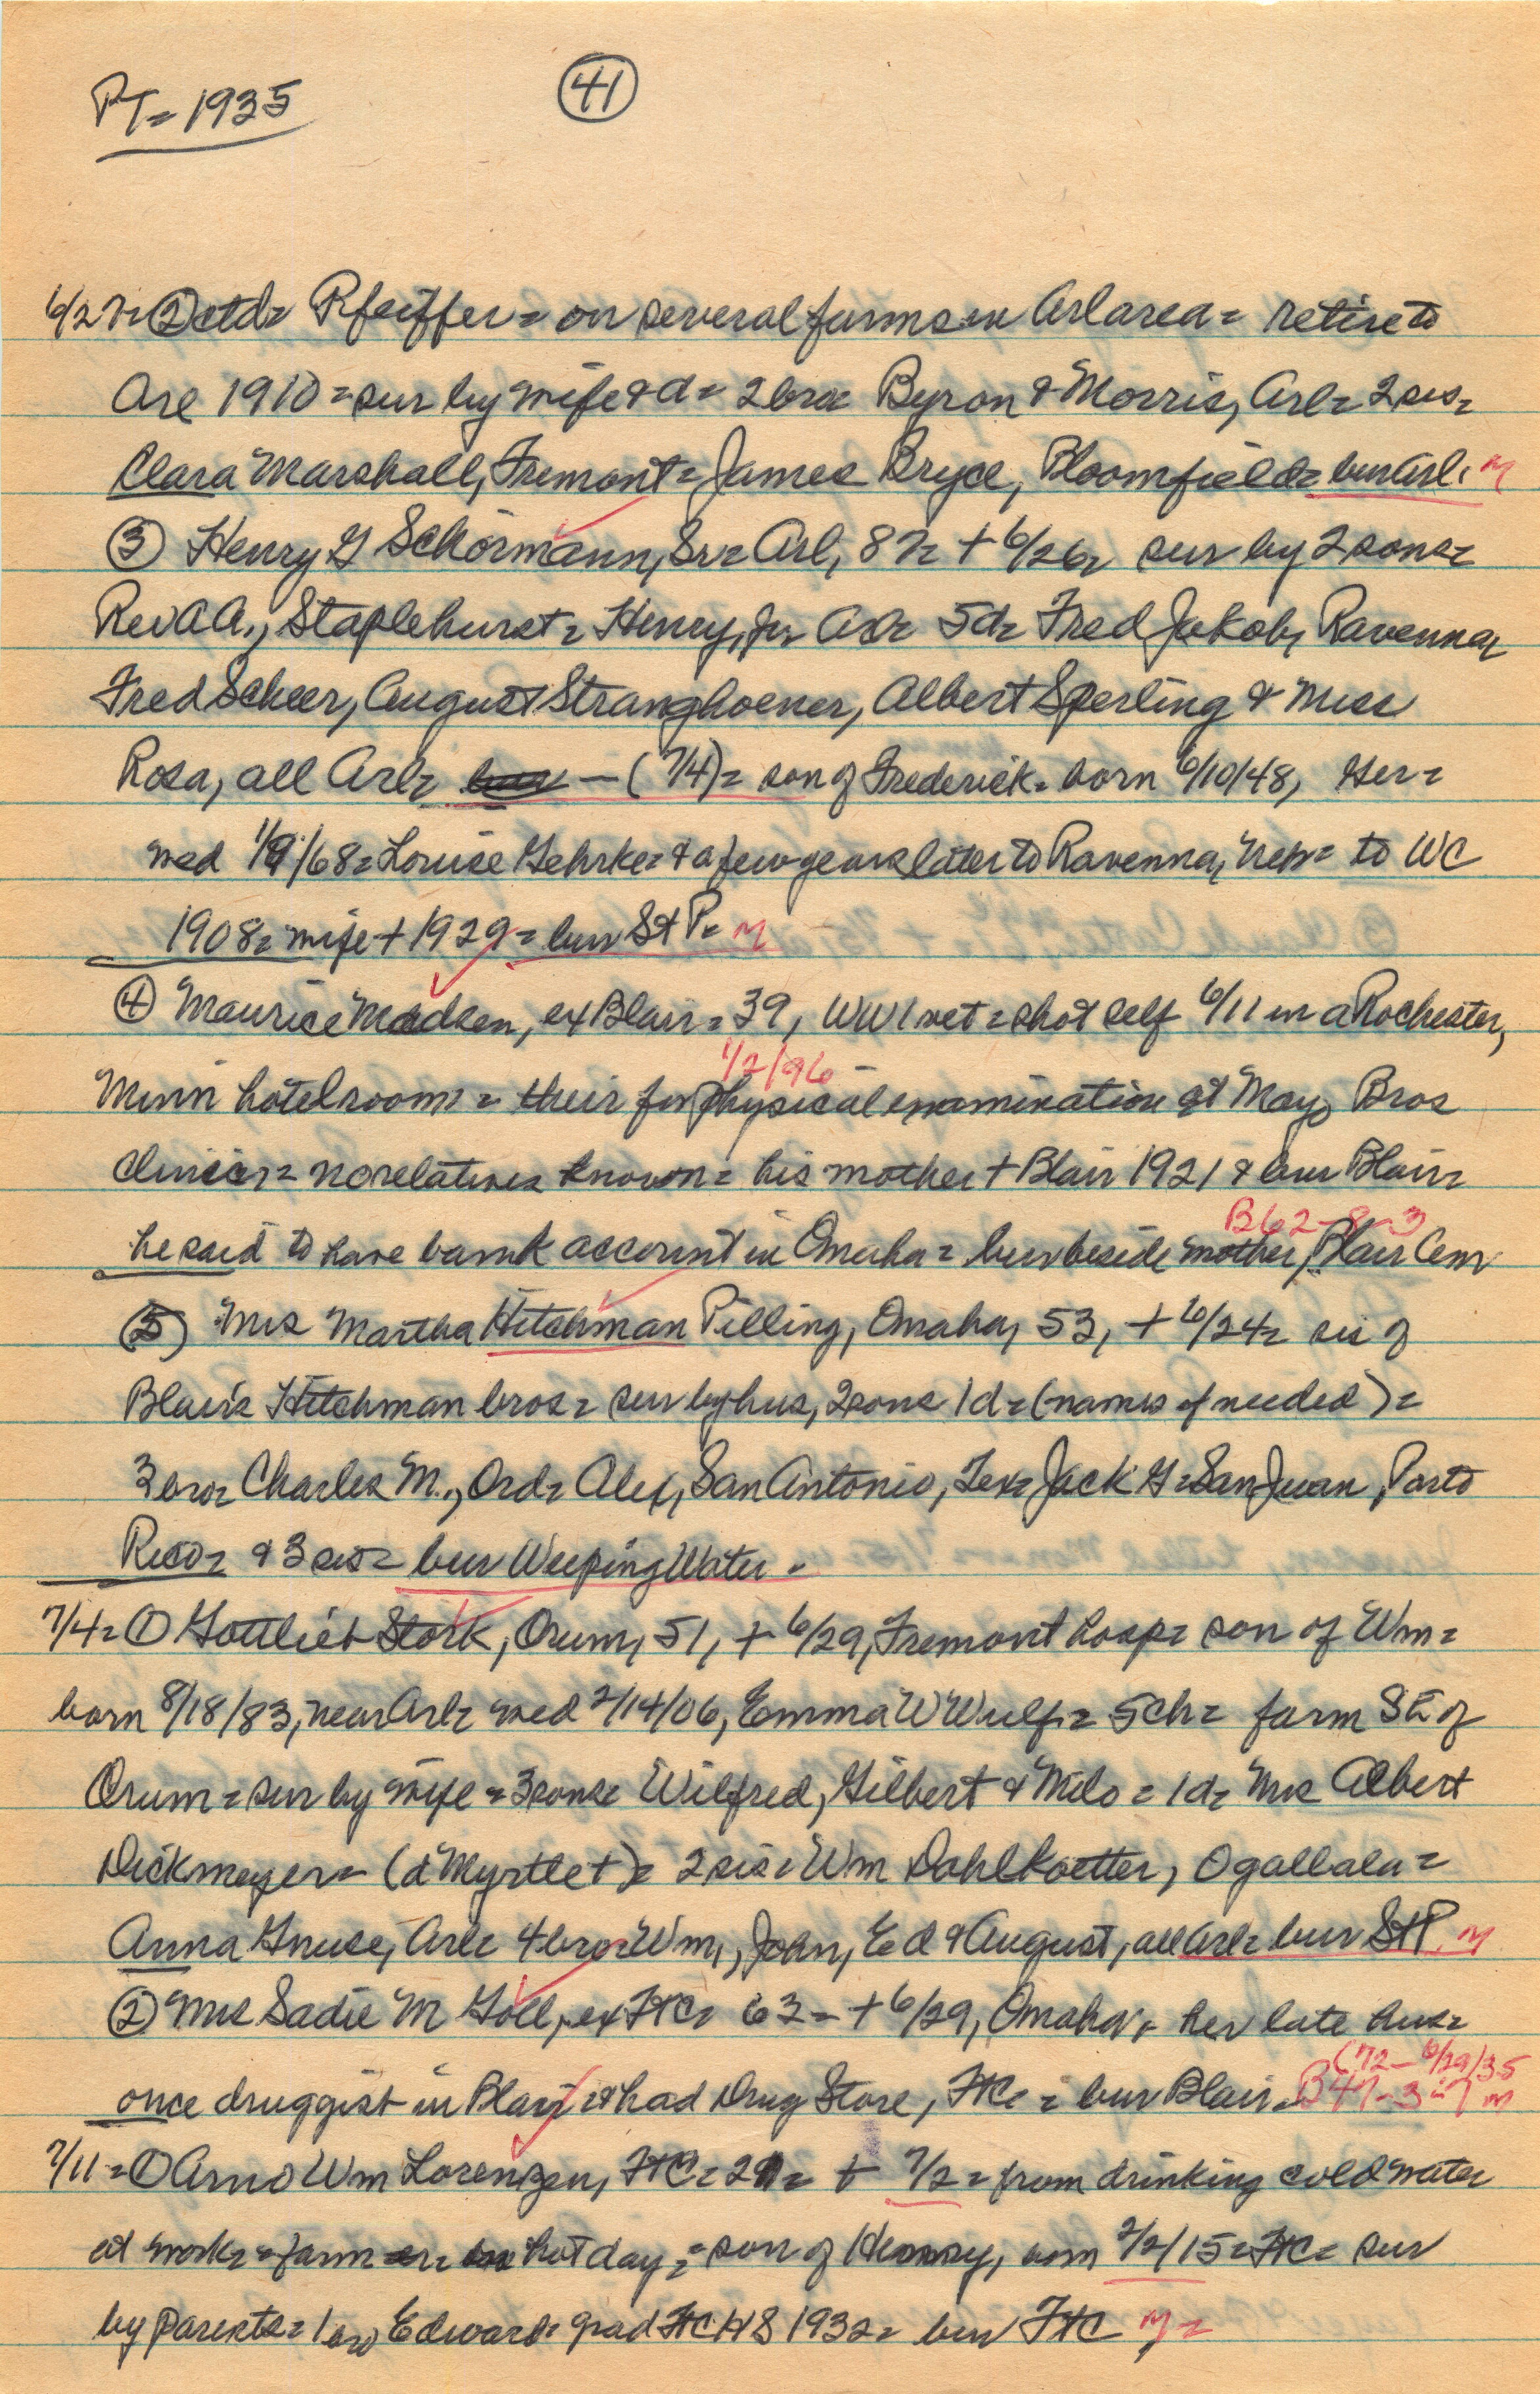 PT= 1935
41
6/27= ② ctd= Pfeiffer= on several farms in Arl area= retire to
Arl 1910= sur by wife & d= 2 bro= Byron & Morris, Arl= 2 sis=
Clara Marshall, Fremont= James Bryce, Bloomfield= bur Arl. M
③ Henry G Schormann, Sr= Arl, 87= + 6/26= sur by 2 sons=
Rev A A., Staplehurst= Henry, Jr= 5d= Fred Jakob, Ravenna,
Fred Scheer, August Stranghoener, Albert Sperling & Miss
Rosa, all Arl= — (7/4)= son of Frederick= born 6/10/48, Ger=
med 1/9/68= Louise Gehrke= & a few years later to Ravenna, Neb= to WC
1908= wife + 1929= bur St P= M
④ Maurice Madsen, ex Blair= 39, WW1 vet= shot self 6/11 in a Rochester,
1/2/96
Minn hotel room= their for physical examination at Mayo Bros
Clinic= no relatives known= his mother + Blair 1921 & bur Blair=
B62-8-3
he said to have bank account in Omaha= bur beside mother, Blair Cem
⑤ Mrs Martha Hitchman Pilling, Omaha, 53, + 6/24= sis of
Blair's Hitchman bros= sur by hus, 2 sons 1 d= (names if needed)=
3 bro= Charles M., Ord= Alex, San Antonio, Tex= Jack G= San Juan, Porto
Rico= & 3 sis= bur Weeping Water.
7/4= ① Gottlieb Stork, Orum, 51, + 6/29, Fremont hosp= son of Wm=
born 8/18/83, near Arl= med 2/14/06, Emma W Wulf= 5 ch= farm SE of
Orum= sur by wife= 3 sons= Wilfred, Gilbert & Milo= 1 d= Mrs Albert
Dickmeyer= (d Myrtle +)= 2 sis= Wm Dahlkoetter, Ogallala=
Anna Gnuse, Arl= 4 bro= Wm, John, Ed & August, all Arl= bur St P. M
② Mrs Sadie M Goll, ex FtC= 63= + 6/29, Omaha, her late hus=
(72-6/29/35
once druggist in Blair & had Drug Store, FtC= bur Blair. B47-3-7 M
7/11= ① Arno Wm Lorenzen, FtC= + 7/2= from drinking cold water
at work= farm hot day= son of Henry, born 2/2/15= FtC= sur
by parents= 1 bro Edward= grad FtC HS 1932= bur FtC M=